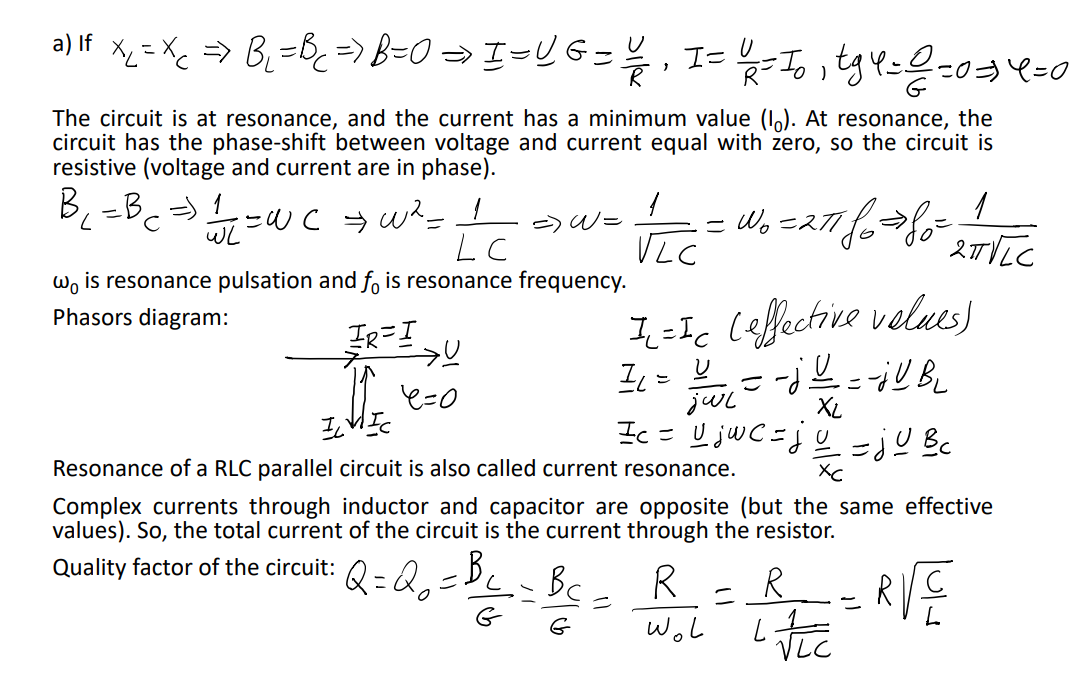 a) If X_L = X_C ⇒ B_L = B_C ⇒ B = 0 ⇒ I = U G = U/R , I = U/R = I₀ , tg φ = 0/G = 0 ⇒ φ = 0
The circuit is at resonance, and the current has a minimum value (I₀). At resonance, the
circuit has the phase-shift between voltage and current equal with zero, so the circuit is
resistive (voltage and current are in phase).
B_L = B_C ⇒ 1/ωL = ωC ⇒ ω² = 1/LC ⇒ ω = 1/√LC = ω₀ = 2πf₀ ⇒ f₀ = 1/2π√LC
ω₀ is resonance pulsation and f₀ is resonance frequency.
Phasors diagram:
I_R = I
U
φ = 0
I_L I_C
I_L = I_C (effective values)
I_L = U/jωL = -j U/X_L = -j U B_L
I_C = U jωC = j U/X_C = j U B_C
Resonance of a RLC parallel circuit is also called current resonance.
Complex currents through inductor and capacitor are opposite (but the same effective
values). So, the total current of the circuit is the current through the resistor.
Quality factor of the circuit: Q = Q₀ = B_L/G = B_C/G = R/ω₀L = R/(L 1/√LC) = R√(C/L)